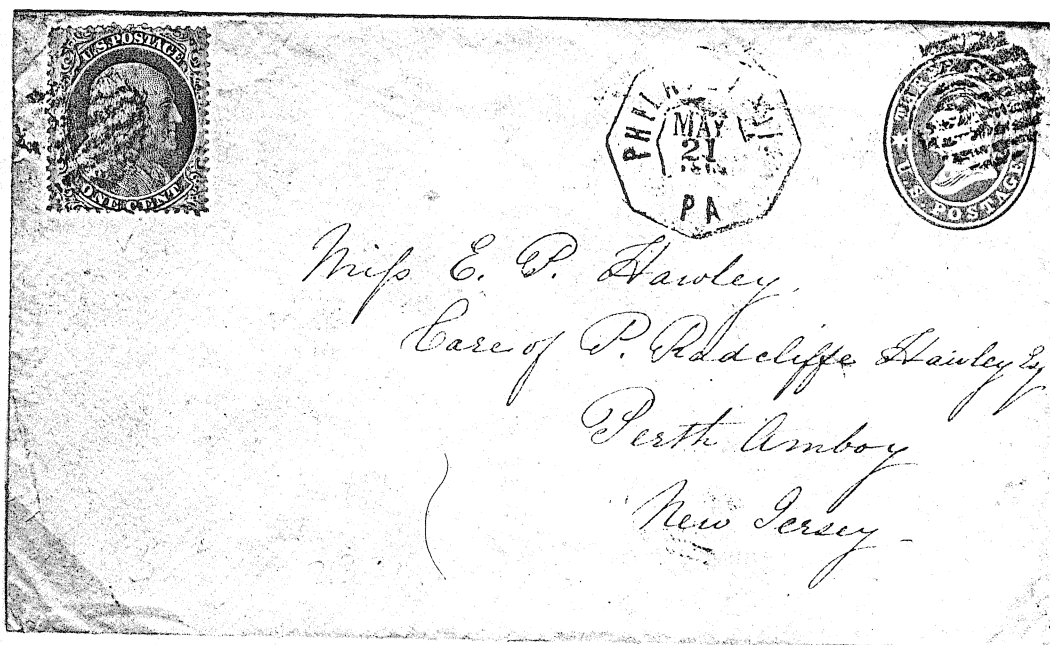 U.S. POSTAGE
ONE CENT
MAY
21
PA
THREE
U.S. POSTAGE
Miss E. P. Hawley.
Care of P. Radcliffe Hawley Esq
Perth Amboy
New Jersey